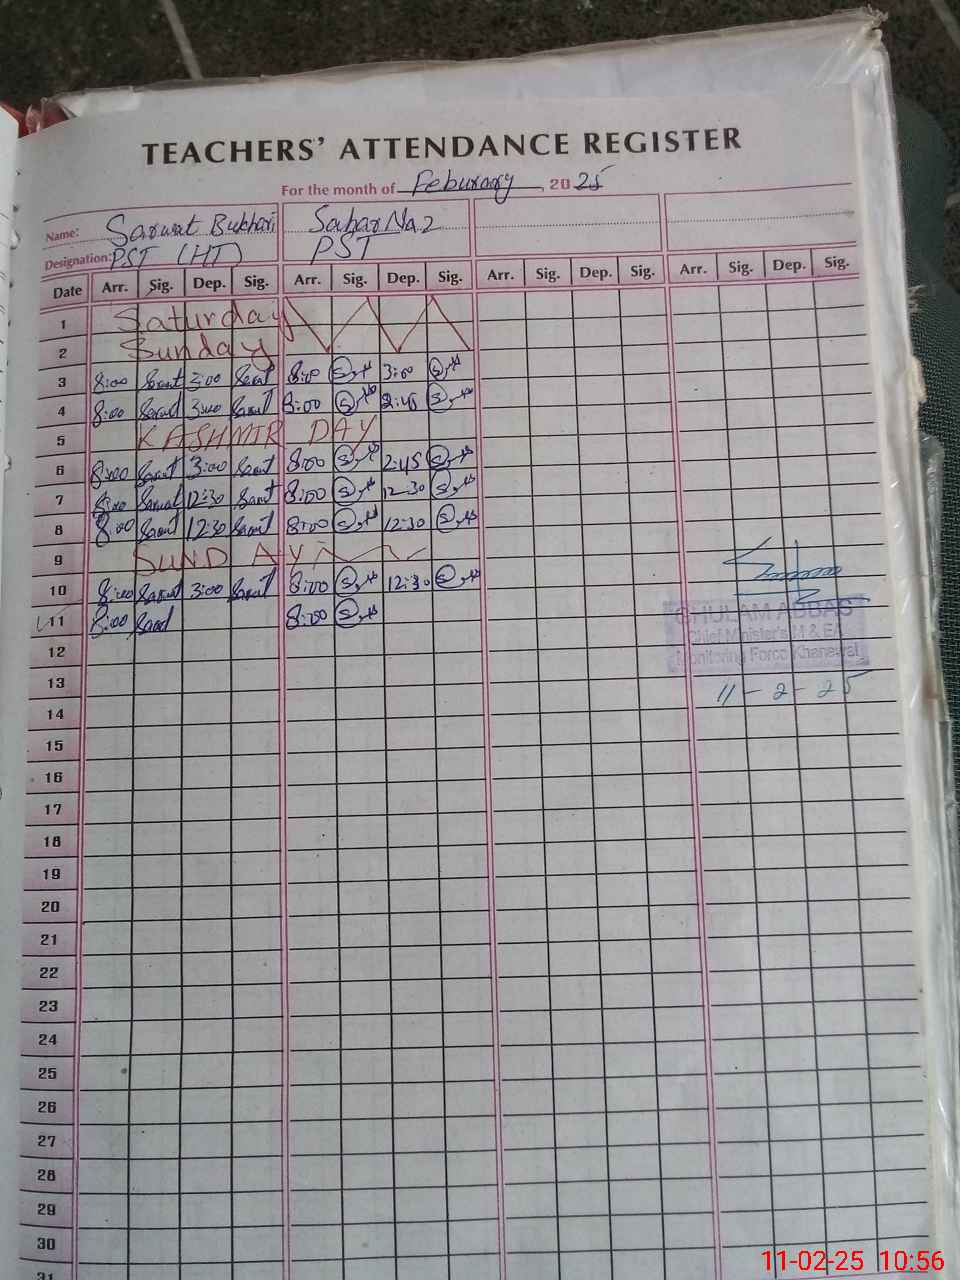 TEACHERS' ATTENDANCE REGISTER
For the month of Feburary, 2025
Name: Sarwat Bukhari Sahar Na.2
Designation: PST (HT) PST
Date Arr. Sig. Dep. Sig. Arr. Sig. Dep. Sig. Arr. Sig. Dep. Sig. Arr. Sig. Dep. Sig.
1 Saturday
2 Sunday
3 8:00 3:00 8:00 3:00
4 8:00 3:00 8:00 2:45
5 KASHMIR DAY
6 8:00 3:00 8:00 2:45
7 8:00 12:30 8:00 12-30
8 8:00 12:30 8:00 12:30
9 SUNDAY
10 8:00 3:00 8:00 12:30
11 8:00 8:00
GHULAM ABBAS
12 Chief Minister's M & EA
Monitoring Force Khanewal
13 11-2-25
14
15
16
17
18
19
20
21
22
23
24
25
26
27
28
29
30
31
11-02-25 10:56